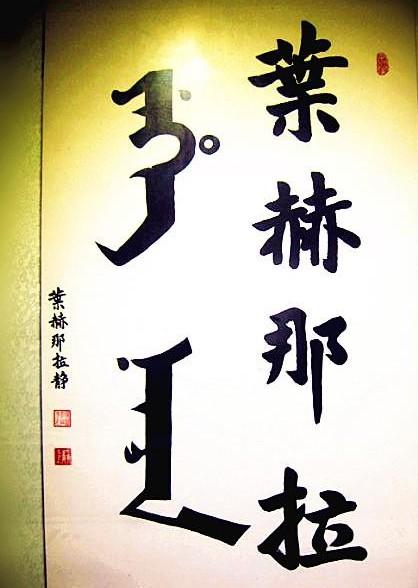 葉赫那拉
ᠶᡝᡥᡝ ᠨᠠᡵᠠ
葉赫那拉静